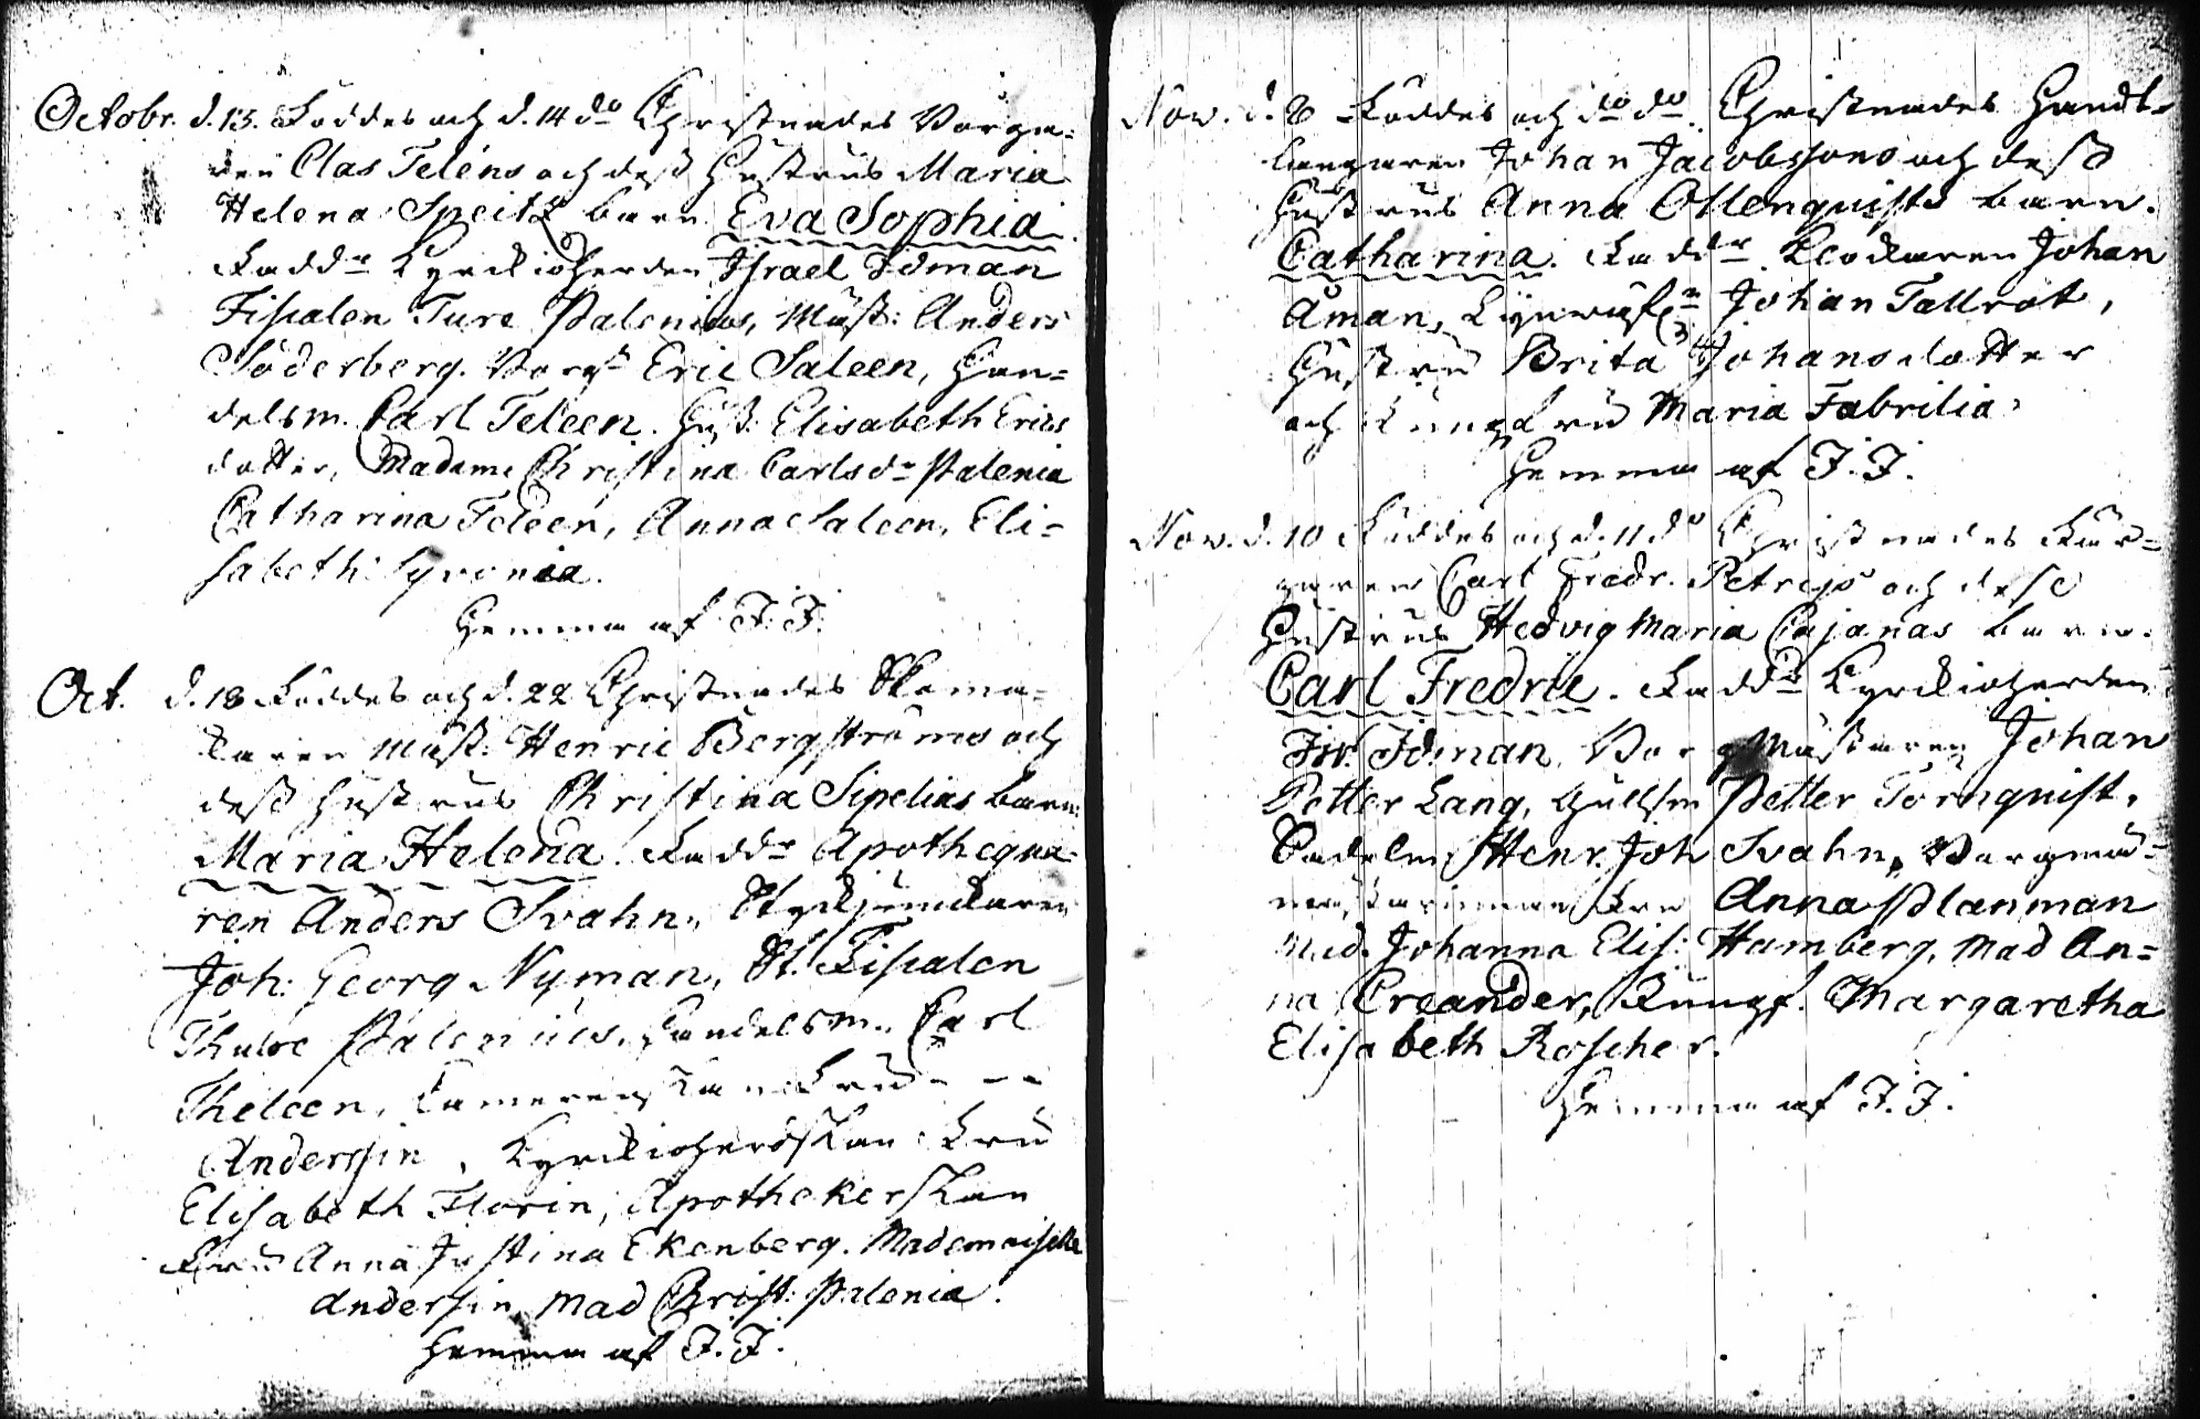 Octobr. d. 13. Föddes och d. 14 do Christnades Borga-
ren Clas Teléns och dess Hustrus Maria
Helena Speitz barn Eva Sophia.
Faddr Kyrckioherden Israel Idman
Fiscalen Ture Palenius, Mäst: Anders
Söderberg. Borgr Eric Saleen, Han-
delsm. Carl Teleen. Hust: Elisabeth Erics
dotter, Madame Christina Carlsdr Palenia
Catharina Teleen, Anna Saleen, Eli-
sabeth Syronia.
Hemma af I. I.
Oct. d. 18 Föddes och d. 22 Christnades Skoma-
karen Mäst: Henric Bergströms och
dess Hustrus Christina Sipelias barn
Maria Helena. Faddr Apothequa-
ren Anders Svahn, Styckjunckaren
Joh: Georg Nyman, St. Fiscalen
Thure Palenius, Handelsm. Carl
Theleen, Camererskan Fru - --
Anderssin, Kyrckioherdskan Fru
Elisabeth Florin, Apothekerskan
Fru Anna Justina Ekenberg. Mademoiselle
Anderssin, Mad Christ: Palenia.
Hemma af I. I.
Nov. d. 6 Föddes och do do Christnades Handt-
langaren Johan Jacobssons och dess
Hustrus Anna Ollenquists barn.
Catharina. Faddr Klockaren Johan
Åman, Johan Tallrot,
Hustru Brita Johansdotter
och Jungfru Maria Fabrilia
Hemma af I. I.
Nov. d. 10 Föddes och d. 11 do Christnades Fär-
garen Carl Fredr. Petrejs och dess
Hustrus Hedvig Maria Cajanas barn.
Carl Fredric. Faddr Kyrckioherden
Isr. Idman, Borgmästaren Johan
Petter Lang, Gullsm Petter Törnquist,
Sadelm Henr. Joh Svahn, Borgmä-
mästarinnan Fru Anna Planman
Mad. Johanna Elis: Hamberg, Mad An-
na Creander, Jungf. Margaretha
Elisabeth Roscher.
Hemma af I. I.